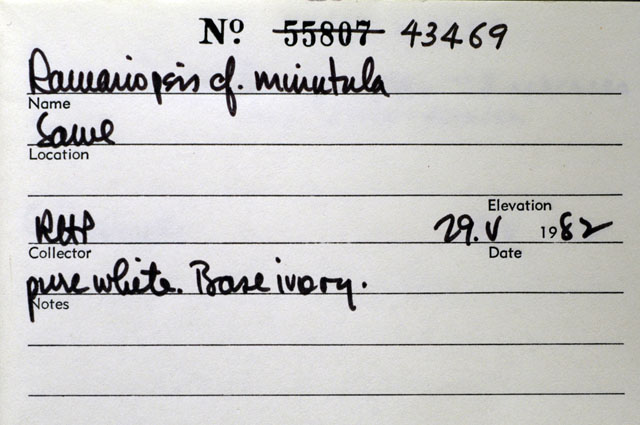 Nº 55807 43469
Ramariopsis cf. minutula
Name
Same
Location
Elevation
RHP 29.V 1982
Collector Date
pure white. Base ivory.
Notes